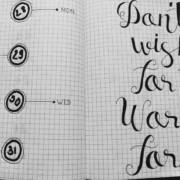 28 MON
29
30 WED
31
Don't
wish
for it
Work
for